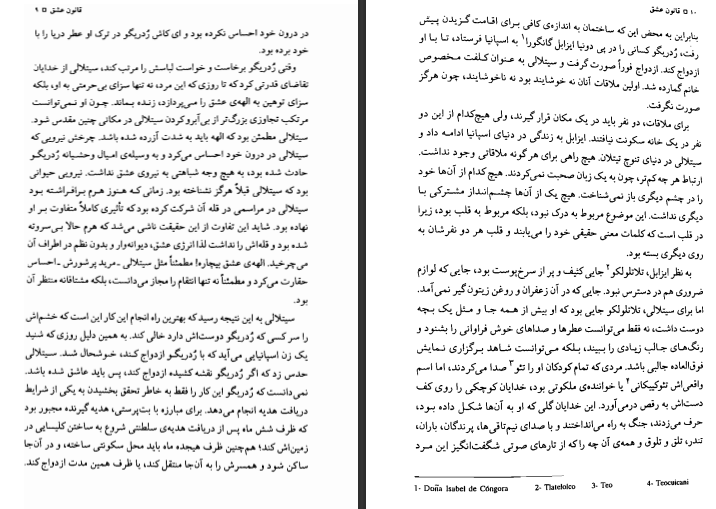 ۹ □ قانون عشق
در درون خود احساس نکرده بود و ای کاش رُدریگو در ترک او عطر دریا را با
خود برده بود.
وقتی رُدریگو برخاست و خواست لباسش را مرتب کند، سیتلالی از خدایان
تقاضای قدرتی کرد که تا روزی که این مرد، نه تنها سزای بی‌حرمتی به او، بلکه
سزای توهین به الهه‌ی عشق را می‌پردازد، زنده بماند. چون او نمی‌توانست
مرتکب تجاوزی بزرگ‌تر از بی‌آبرو کردن سیتلالی در مکانی چنین مقدس شود.
سیتلالی مطمئن بود که الهه باید به شدت آزرده شده باشد. چرخش نیرویی که
سیتلالی در درون خود احساس می‌کرد و به وسیله‌ی امیال وحشیانه رُدریگو
حادث شده بود، به هیچ وجه شباهتی به نیروی عشق نداشت. نیرویی حیوانی
بود که سیتلالی قبلاً هرگز نشناخته بود. زمانی که هنوز هرم برافراشته بود
سیتلالی در مراسمی در قله آن شرکت کرده بود که تأثیری کاملاً متفاوت بر او
نهاده بود. شاید این تفاوت از این حقیقت ناشی می‌شد که هرم حالا بی‌سروته
شده بود و قله‌اش را نداشت لذا انرژی عشق، دیوانه‌وار و بدون نظم در اطراف آن
می‌چرخید. الهه‌ی عشق بیچاره! مطمئناً مثل سیتلالی ـ مرید پرشورش ـ احساس
حقارت می‌کرد و مطمئناً نه تنها انتقام را مجاز می‌دانست، بلکه مشتاقانه منتظر آن
بود.
سیتلالی به این نتیجه رسید که بهترین راه انجام این کار این است که خشم‌اش
را سر کسی که رُدریگو دوست‌اش دارد خالی کند. به همین دلیل روزی که شنید
یک زن اسپانیایی می‌آید که با رُدریگو ازدواج کند، خوشحال شد. سیتلالی
حدس زد که اگر رُدریگو نقشه کشیده ازدواج کند، پس باید عاشق شده باشد.
نمی‌دانست که رُدریگو این کار را فقط به خاطر تحقق بخشیدن به یکی از شرایط
دریافت هدیه انجام می‌دهد. برای مبارزه با بت‌پرستی، هدیه گیرنده مجبور بود
که ظرف شش ماه پس از دریافت هدیه‌ی سلطنتی شروع به ساختن کلیسایی در
زمین‌اش کند؛ هم‌چنین ظرف هیجده ماه باید محل سکونتی ساخته، و در آن‌جا
ساکن شود و همسرش را به آن‌جا منتقل کند، یا ظرف همین مدت ازدواج کند.
۱۰ □ قانون عشق
بنابراین به محض این که ساختمان به اندازه‌ی کافی برای اقامت گزیدن پیش
رفت، رُدریگو کسانی را در پی دونیا ایزابل گانگورا۱ به اسپانیا فرستاد، تا با او
ازدواج کند. ازدواج فوراً صورت گرفت و سیتلالی به عنوان کلفت مخصوص
خانم گمارده شد. اولین ملاقات آنان نه خوشایند بود نه ناخوشایند، چون هرگز
صورت نگرفت.
برای ملاقات، دو نفر باید در یک مکان قرار گیرند، ولی هیچ‌کدام از این دو
نفر در یک خانه سکونت نیافتند. ایزابل به زندگی در دنیای اسپانیا ادامه داد و
سیتلالی در دنیای تنوچ تیتلان. هیچ راهی برای هر گونه ملاقاتی وجود نداشت.
ارتباط هر چه کم‌تر، چون به یک زبان صحبت نمی‌کردند. هیچ‌کدام از آن‌ها خود
را در چشم دیگری باز نمی‌شناخت. هیچ یک از آن‌ها چشم‌انداز مشترکی با
دیگری نداشت. این موضوع مربوط به درک نبود، بلکه مربوط به قلب بود، زیرا
در قلب است که کلمات معنی حقیقی خود را می‌یابند و قلب هر دو نفرشان به
روی دیگری بسته بود.
به نظر ایزابل، تلاتلولکو۲ جایی کثیف و پر از سرخ‌پوست بود، جایی که لوازم
ضروری هم در دسترس نبود. جایی که در آن زعفران و روغن زیتون گیر نمی‌آمد.
اما برای سیتلالی، تلاتلولکو جایی بود که او بیش از همه جا و مثل یک بچه
دوست داشت، نه فقط می‌توانست عطرها و صداهای خوش فراوانی را بشنود و
رنگ‌های جالب زیادی را ببیند، بلکه می‌توانست شاهد برگزاری نمایش
فوق‌العاده جالبی باشد. مردی که تمام کودکان او را تئو۳ صدا می‌کردند، اما اسم
واقعی‌اش تئوکیکانی۴ یا خواننده‌ی ملکوتی بود، خدایان کوچکی را روی کف
دست‌اش به رقص درمی‌آورد. این خدایان گلی که او به آن‌ها شکل داده بود،
حرف می‌زدند، جنگ به راه می‌انداختند و با صدای نیم‌تاقی‌ها، پرندگان، باران،
تندر، تلق و تلوق و همه‌ی آن چه را که از تارهای صوتی شگفت‌انگیز این مرد
1- Doña Isabel de Cóngora 2- Tlatelolco 3- Teo 4- Teocuicani